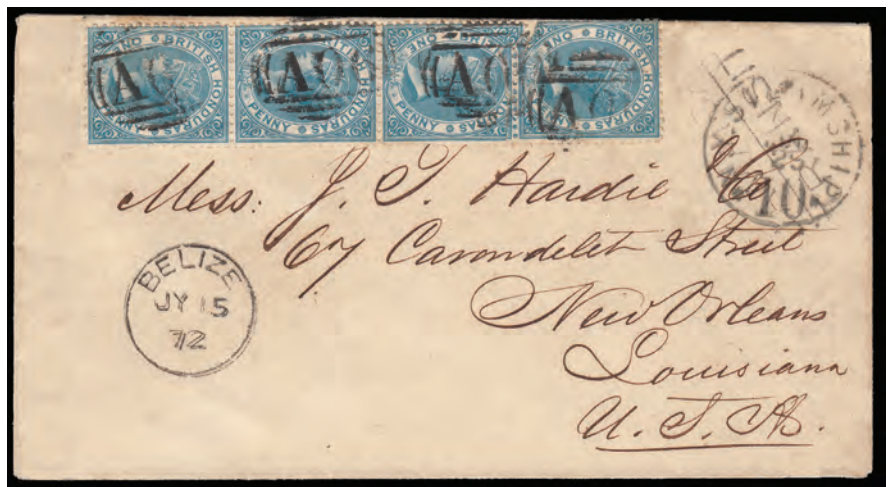 ONE PENNY BRITISH HONDURAS
ONE PENNY BRITISH HONDURAS
ONE PENNY BRITISH HONDURAS
ONE PENNY BRITISH HONDURAS
A
A
A
A
STEAMSHIP
10
Mess: J. T. Hardie & Co
67 Carondelet Street
New Orleans
Louisiana
U.S.A.
BELIZE
JY 15
72